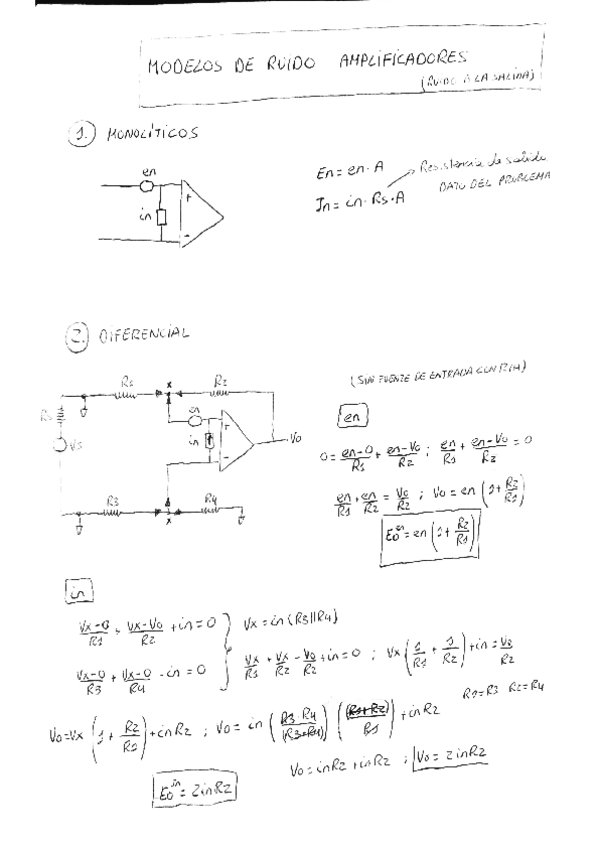 MODELOS DE RUIDO AMPLIFICADORES
(RUIDO A LA SALIDA)
1. MONOLÍTICOS
en
in
+
-
En = en · A
Jn = in · Rs · A
Resistencia de salida
DATO DEL PROBLEMA
2. DIFERENCIAL
(SIN FUENTE DE ENTRADA CON RIN)
R1
x
R2
Rs
Vs
en
in
+
-
Vo
R3
x
R4
en
0 = (en-0)/R1 + (en-Vo)/R2 ; en/R1 + (en-Vo)/R2 = 0
en/R1 + en/R2 = Vo/R2 ; Vo = en (1 + R2/R1)
Eo^en = en (1 + R2/R1)
in
(Vx-0)/R1 + (Vx-Vo)/R2 + in = 0
Vx = in (R3||R4)
(Vx-0)/R3 + (Vx-0)/R4 - in = 0
Vx/R1 + Vx/R2 - Vo/R2 + in = 0 ; Vx (1/R1 + 1/R2) + in = Vo/R2
R1=R3 R2=R4
Vo = Vx (1 + R2/R1) + inR2 ; Vo = in (R3·R4/(R3+R4)) ((R1+R2)/R1) + inR2
Vo = inR2 + inR2 ; Vo = 2inR2
Eo^in = 2inR2